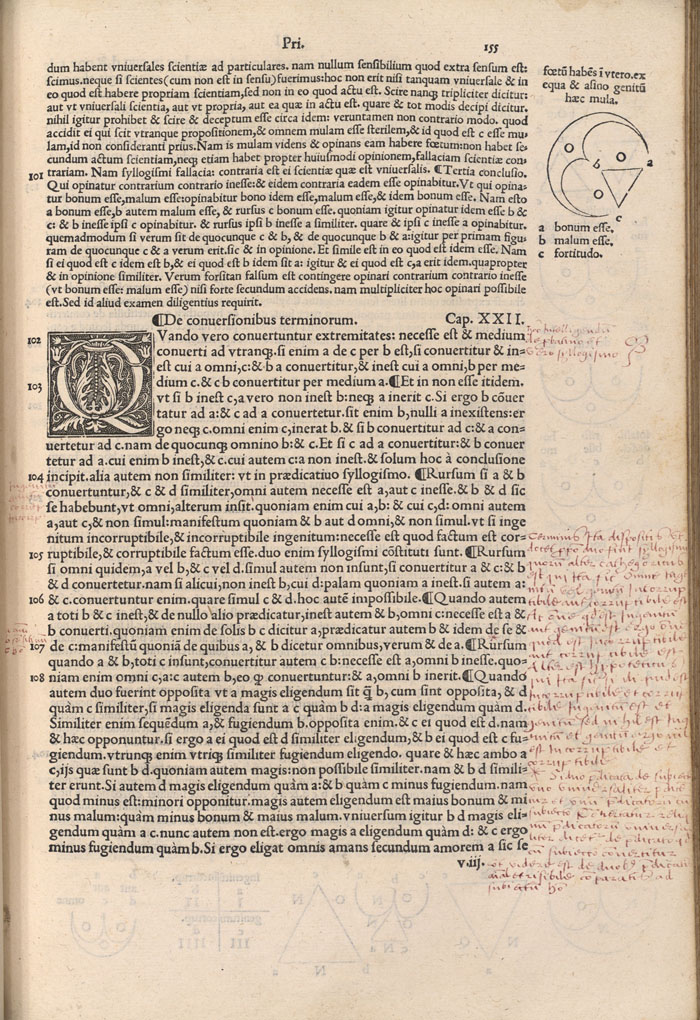 Pri. 155
dum habent vniuersales scientiæ ad particulares. nam nullum sensibilium quod extra sensum est:
scimus. neque si scientes (cum non est in sensu) fuerimus: hoc non erit nisi tanquam vniuersale & in
eo quod est habere propriam scientiam, sed non in eo quod actu est. Scire nanq; tripliciter dicitur:
aut vt vniuersali scientia, aut vt propria, aut ea quæ in actu est. quare & tot modis decipi dicitur.
nihil igitur prohibet & scire & deceptum esse circa idem: veruntamen non contrario modo. quod
accidit ei qui scit vtranque propositionem, & omnem mulam esse sterilem, & id quod est c esse mu⸗
lam, id non consideranti prius. Nam is mulam videns & opinans eam habere fœtum: non habet se⸗
cundum actum scientiam, neq; etiam habet propter huiusmodi opinionem, fallaciam scientiæ con⸗
101 trariam. Nam syllogismi fallacia: contraria est ei scientiæ quæ est vniuersalis. ¶Tertia conclusio.
Qui opinatur contrarium contrario inesse: & eidem contraria eadem esse opinabitur. Vt qui opina⸗
tur bonum esse, malum esse: opinabitur bono idem esse, malum esse, & idem bonum esse. Nam esto
a bonum esse, b autem malum esse, & rursus c bonum esse. quoniam igitur opinatur idem esse b &
c: & b inesse ipsi c opinabitur. & rursus ipsi b inesse a similiter. quare & ipsi c inesse a opinabitur.
quemadmodum si verum sit de quocunque c & b, & de quocunque b & a: igitur per primam figu⸗
ram de quocunque c & a verum erit. sic & in opinione. Et simile est in eo quod est idem esse. Nam
si ei quod est c idem est b, & ei quod est b idem sit a: igitur & ei quod est c, a erit idem. quapropter
& in opinione similiter. Verum forsitan falsum est contingere opinari contrarium contrario inesse
(vt bonum esse: malum esse) nisi forte secundum accidens. nam multipliciter hoc opinari possibile
est. Sed id aliud examen diligentius requirit.
fœtũ habẽs ĩ vtero. ex
equa & asino genitũ
hæc mula.
a
b
c
a bonum esse,
b malum esse,
c fortitudo.
¶De conuersionibus terminorum. Cap. XXII.
102 QVando vero conuertuntur extremitates: necesse est & medium
conuerti ad vtranq;. si enim a de c per b est, si conuertitur & in⸗
est cui a omni, c: & b a conuertitur, & inest cui a omni, b per me⸗
103 dium c. & c b conuertitur per medium a. ¶Et in non esse itidem.
vt si b inest c, a vero non inest b: neq; a inerit c. Si ergo b cõuer
tatur ad a: & c ad a conuertetur. sit enim b, nulli a inexistens: er
go neq; c. omni enim c, inerat b. & si b conuertitur ad c: & a con⸗
uertetur ad c. nam de quocunq; omnino b: & c. Et si c ad a conuertitur: & b conuer
tetur ad a. cui enim b inest, & c. cui autem c: a non inest. & solum hoc à conclusione
104 incipit. alia autem non similiter: vt in prædicatiuo syllogismo. ¶Rursum si a & b
conuertuntur, & c & d similiter, omni autem necesse est a, aut c inesse. & b & d sic
se habebunt, vt omni, alterum insit. quoniam enim cui a, b: & cui c, d: omni autem
a, aut c, & non simul: manifestum quoniam & b aut d omni, & non simul. vt si inge
nitum incorruptibile, & incorruptibile ingenitum: necesse est quod factum est cor⸗
105 ruptibile, & corruptibile factum esse. duo enim syllogismi cõstituti sunt. ¶Rursum
si omni quidem, a vel b, & c vel d. simul autem non insunt, si conuertitur a & c: & b
& d conuertetur. nam si alicui, non inest b, cui d: palam quoniam a inest. si autem a:
106 & c. conuertuntur enim. quare simul c & d. hoc autẽ impossibile. ¶Quando autem
a toti b & c inest, & de nullo alio prædicatur, inest autem & b, omni c: necesse est a &
b conuerti. quoniam enim de solis b c dicitur a, prædicatur autem b & idem de se &
107 de c: manifestũ quoniã de quibus a, & b dicetur omnibus, verum & de a. ¶Rursum
quando a & b, toti c insunt, conuertitur autem c b: necesse est a, omni b inesse. quo⸗
108 niam enim omni c, a: c autem b, eo q; conuertuntur: & a, omni b inerit. ¶Quando
autem duo fuerint opposita vt a magis eligendum sit q̃ b, cum sint opposita, & d
quàm c similiter, si magis eligenda sunt a c quàm b d: a magis eligendum quàm d.
Similiter enim sequẽdum a, & fugiendum b. opposita enim. & c ei quod est d. nam
& hæc opponuntur. si ergo a ei quod est d similiter eligendum, & b ei quod est c fu⸗
giendum. vtrunq; enim vtriq; similiter fugiendum eligendo. quare & hæc ambo a
c, ijs quæ sunt b d. quoniam autem magis: non possibile similiter. nam & b d simili⸗
ter erunt. Si autem d magis eligendum quàm a: & b quàm c minus fugiendum. nam
quod minus est: minori opponitur. magis autem eligendum est maius bonum & mi
nus malum: quàm minus bonum & maius malum. vniuersum igitur b d magis eli⸗
gendum quàm a c. nunc autem non est. ergo magis a eligendum quàm d: & c ergo
minus fugiendum quàm b. Si ergo eligat omnis amans secundum amorem a sic se
v.iij.